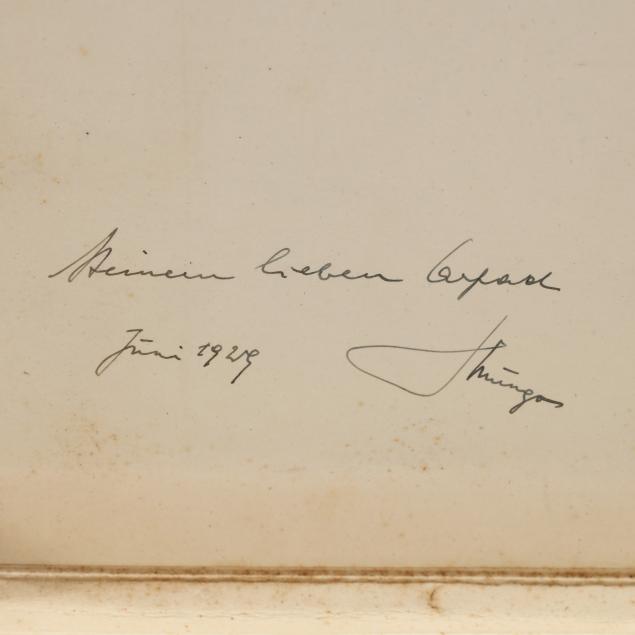 Meinem lieben Arpad
Juni 1929